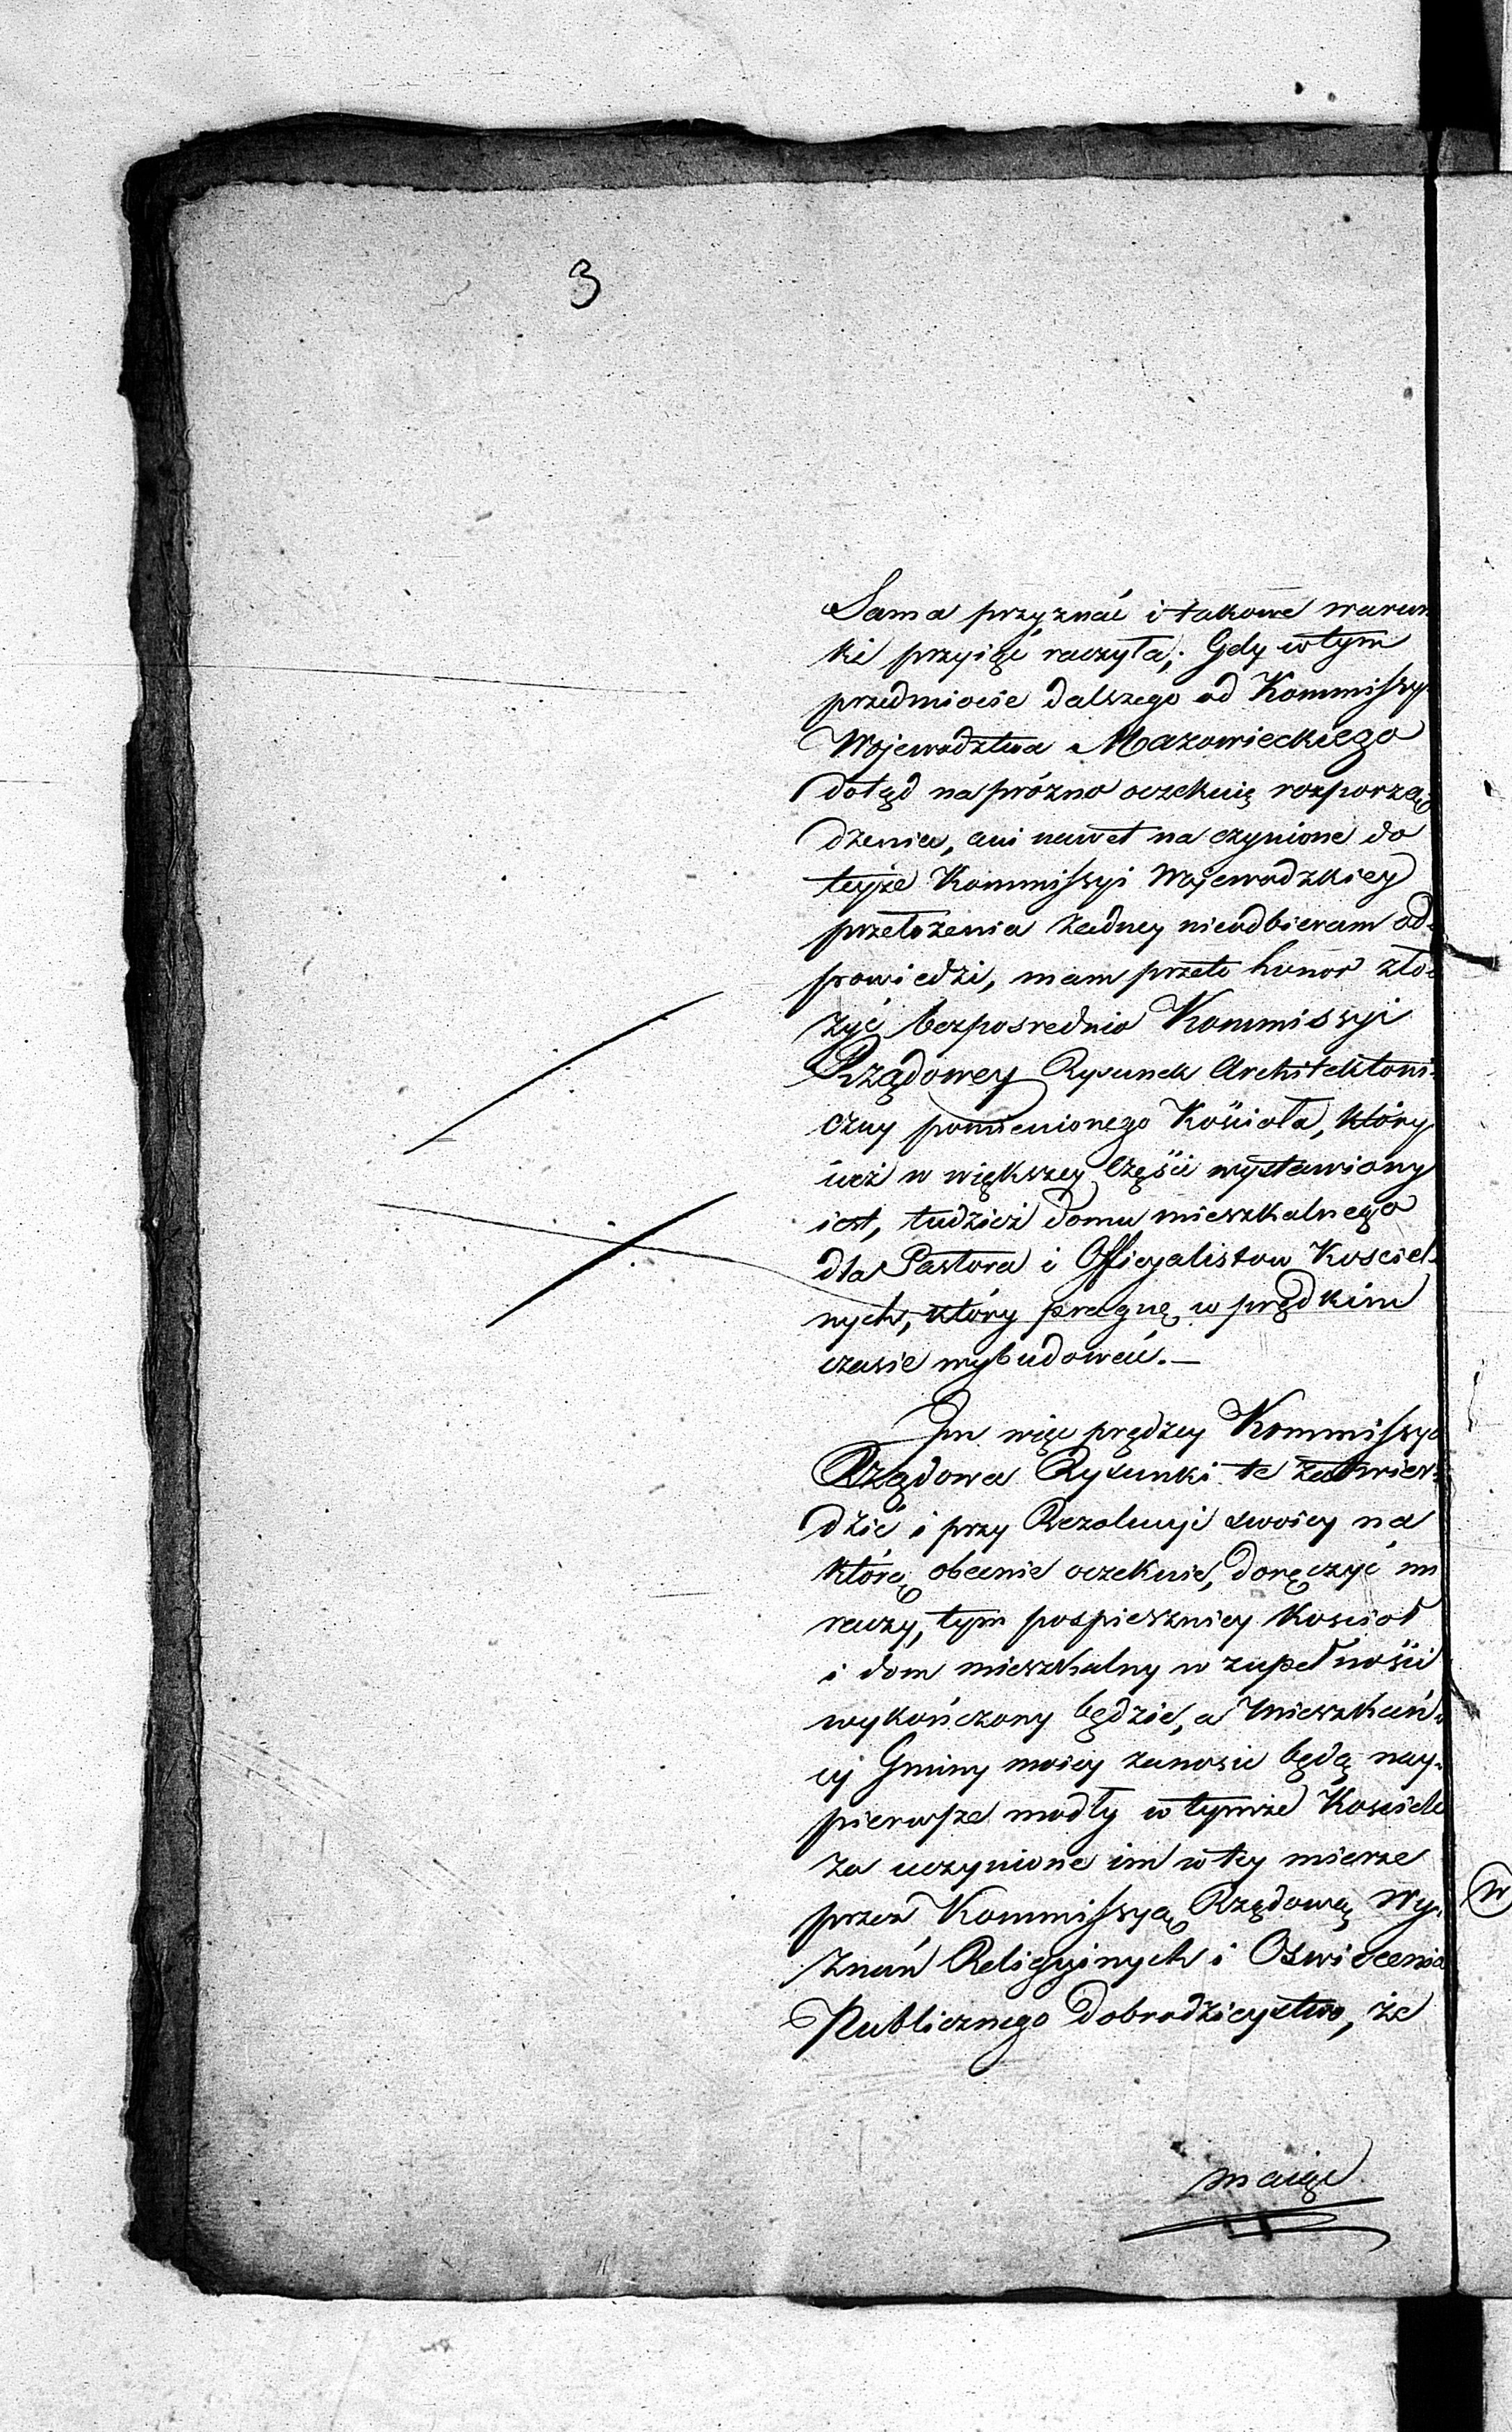 3
Sama przyznać i takowe warun
ki przyiąć raczyła; Gdy w tym
przedmiocie dalszego od Kommissyi
Województwa Mazowieckiego
dotąd napróżno oczekuię rozporzą
dzenia, ani nawet na czynione do
teyże Kommissyi Wojewodzkiey
przełożenia żadney nieodbieram od-
powiedzi, mam przeto honor zło
żyć bezposrednio Kommissyi
Rządowey Rysunek Architektoni-
czny pomienionego Kościoła, który
iuż w większey części wystawiony
iest, tudzież domu mieszkalnego
dla Pastora i Officyalistow Kosciel-
nych, który pragnę w prędkim
czasie wybudować.—
Im więc prędzey Kommissya
Rządowa Rysunki te zatwier-
dzić i przy Rezolucyi swoiey na
którą obecnie oczekuie, doręczyć mi
raczy, tym pospieszniey Koscioł
i dom mieszkalny w zupełności
wykończony będzie, a Mieszkań-
cy Gminy moiey zanosić będą nay-
pierwsze modły w tymże Kosciele
za uczynione im w tey mierze
przez Kommissyą Rządową Wy-
znań Religyinych i Oswiecenia
Publicznego dobrodzieystwo, że
maiąc
W